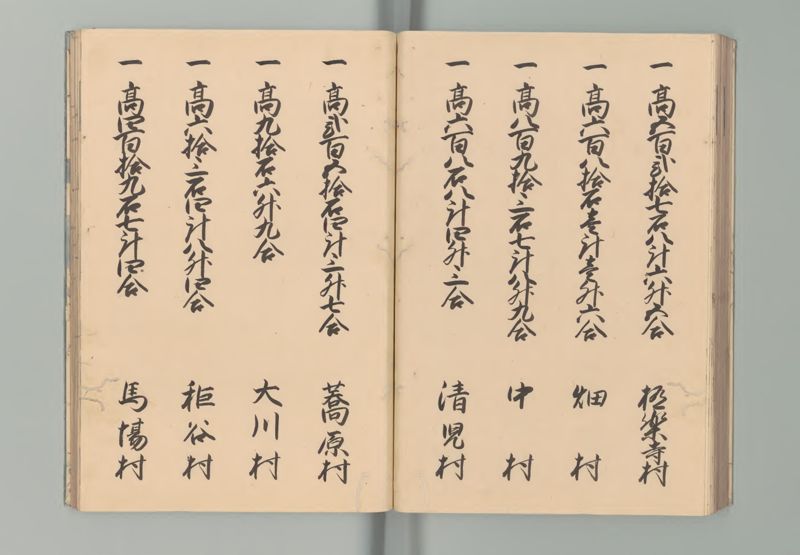 一 高五百弐拾七石八斗六升五合 極楽寺村
一 高六百八拾石壱斗壱升六合 畑村
一 高八百九拾三石七斗八升九合 中村
一 高六百八石八斗四升三合 清児村
一 高弐百五拾石四斗三升七合 蕎原村
一 高九拾石六升九合 大川村
一 高六拾三石四斗八升四合 秬谷村
一 高四百拾九石七斗四合 馬場村